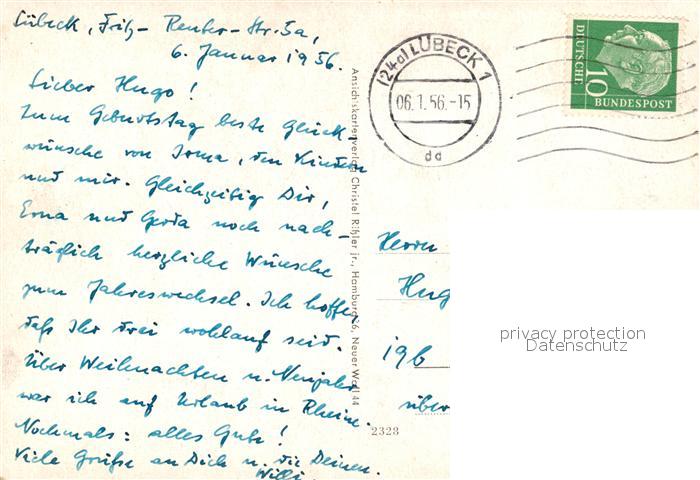 Lübeck, Fritz-Reuter-Str. 5a,
6. Januar 1956.
Lieber Hugo!
Zum Geburtstag beste Glück-
wünsche von Irma, den Kindern
und mir. Gleichzeitig Dir,
Erna und Gerda noch nach-
träglich herzliche Wünsche
zum Jahreswechsel. Ich hoffe,
daß Ihr drei wohlauf seid.
Über Weihnachten u. Neujahr
war ich auf Urlaub in Rheine.
Nochmals: alles Gute!
Viele Grüße an Dich u. die Deinen.
Willi
Ansichtskartenverlag Christel Rißler jr., Hamburg 26, Neuer Wall 44
2328
(24a) LÜBECK 1
06.1.56.-15
da
DEUTSCHE
10
BUNDESPOST
Herrn
Hug
19b
über
privacy protection
Datenschutz